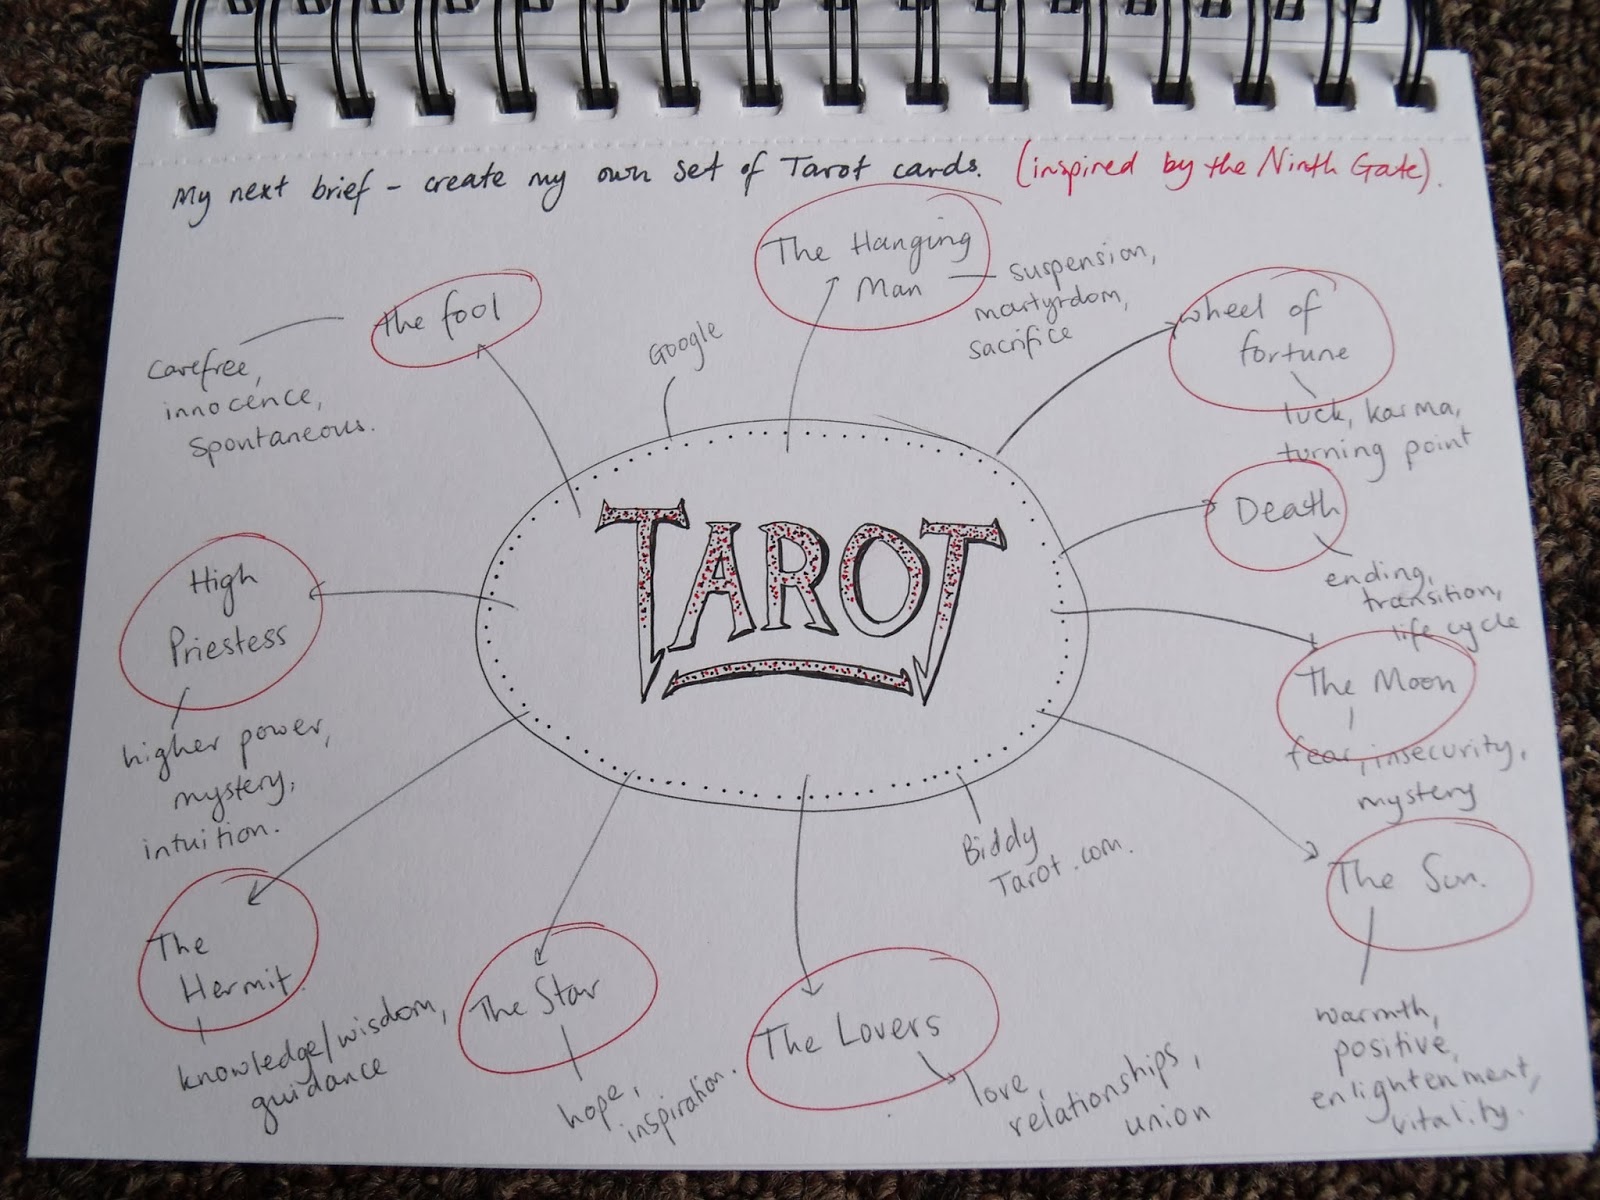 My next brief - create my own set of Tarot cards. (inspired by the Ninth Gate).
The Hanging
Man
suspension,
martyrdom,
sacrifice
the fool
carefree,
innocence,
spontaneous.
Google
wheel of
fortune
luck, karma,
turning point
Death
ending,
transition,
life cycle
TAROT
High
Priestess
higher power,
mystery,
intuition.
The Moon
fear, insecurity,
mystery
Biddy
Tarot.com.
The Sun.
warmth,
positive,
enlightenment,
vitality.
The
Hermit.
knowledge/wisdom,
guidance
The Star
hope,
inspiration.
The Lovers
love,
relationships,
union